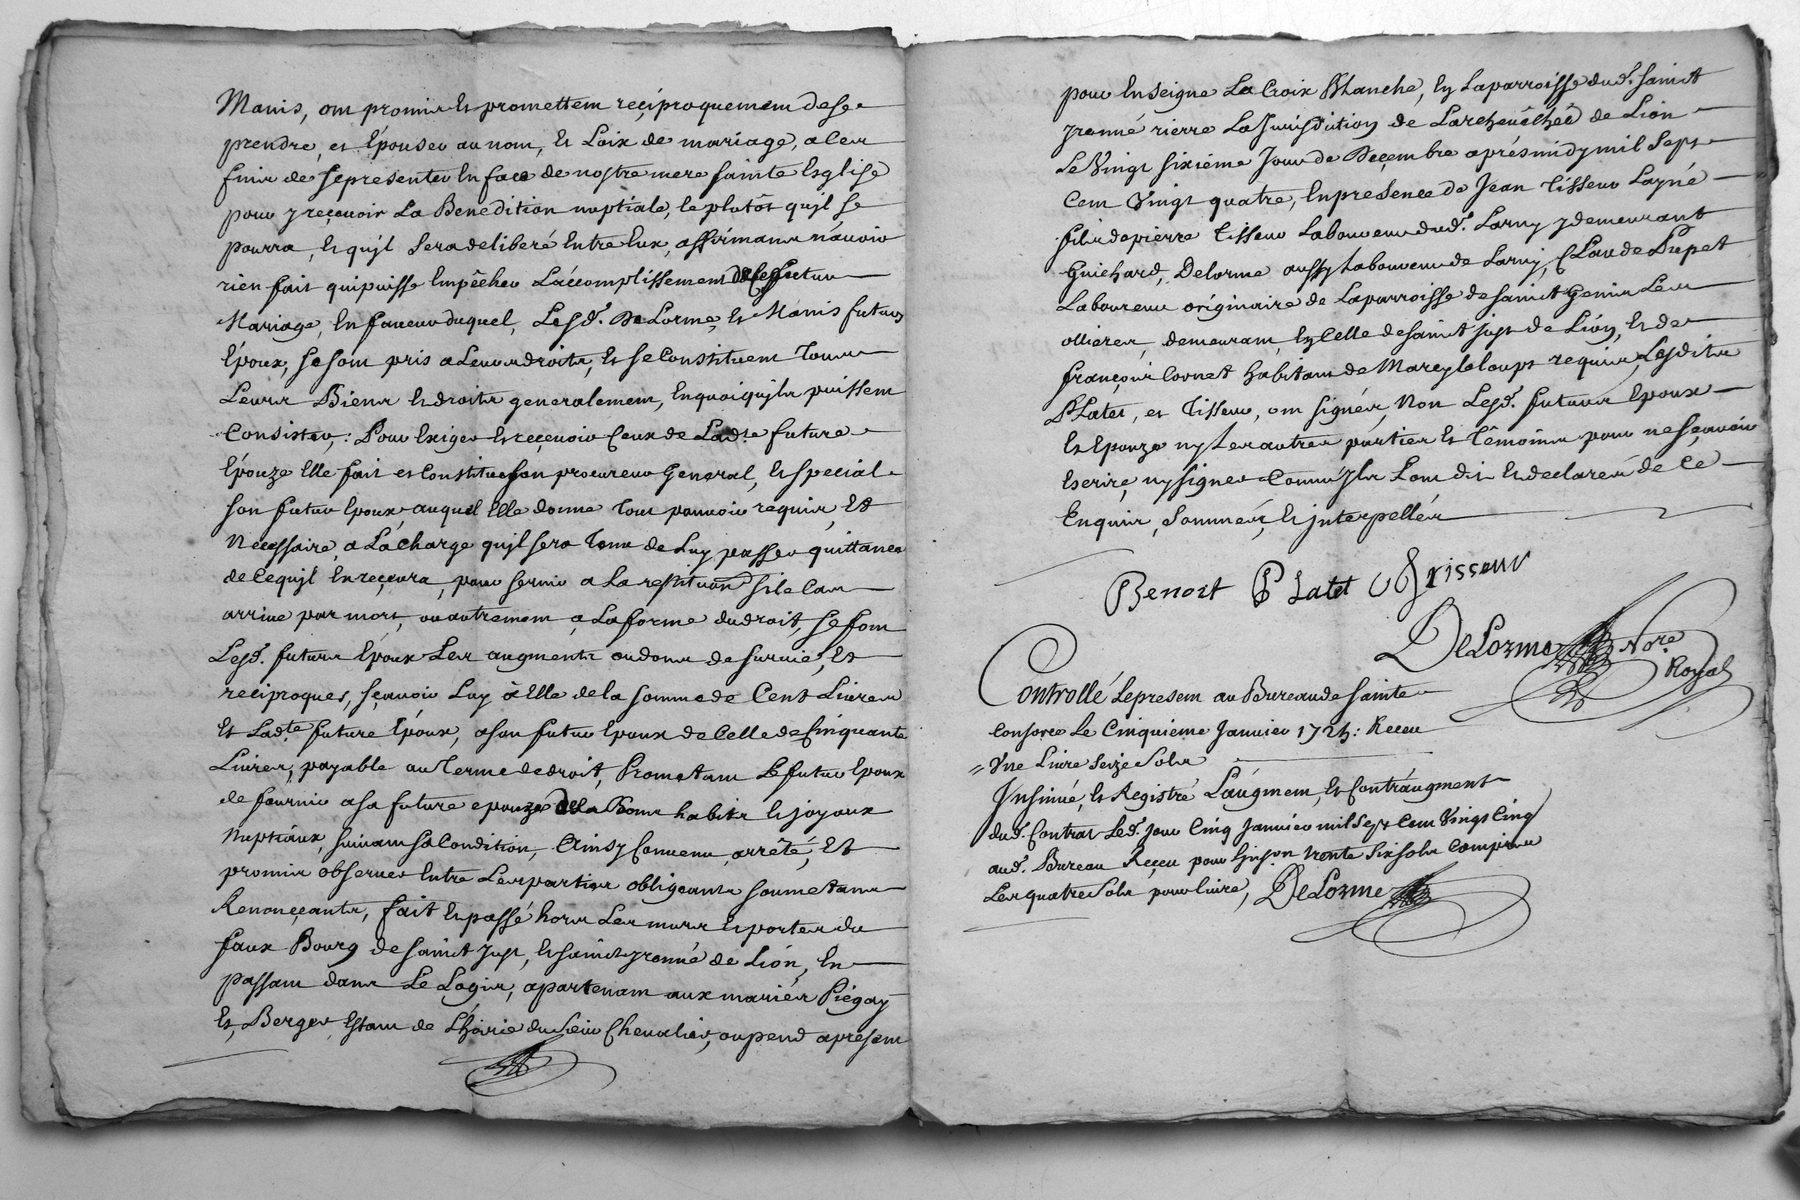 Manis, ont promis et promettent reçiproquement de se
prendre, et Epouser au nom, et Loix de mariage, a ces
fins de se presenter En face de nostre mere sainte Esglise
pour y reçevoir La Benediction nuptiale, le plutôt qu'jl se
pourra, et qu'jl sera deliberé Entre Eux, affirmants n'avoir
rien fait qui puisse Empêcher L'accomplissement dud. futur
Mariage, En faveur duquel, Lesd. DeLorme, et Manis futurs
Epoux, se sont pris a Leurs droits, et se Constituent Tous
Leurs Biens et droits generalement, En quoi qu'jls puissent
Consister,: Pour Exiger et reçevoir Ceux de Lad.te future
Epouze Elle fait et Constitue son procureur General, et special
son futur Epoux auquel Elle donne tout pouvoir requis, Et
Necessaire, a La charge qu'jl sera Tenu de Luy passer quittance
de Ce qu'jl En reçevra, pour servir a La restitution si le Cas
arrive par mort, ou autrement a La forme du droit, se font
Lesd. futurs Epoux Les augments ou dons de survie, Et
reciproques, sçavoir Luy à Elle de la somme de Cent Livres
Et Lad.te future Epoux, a son futur Epoux de Celle de Cinquante
Livres, payable au Terme de droit, Promettant Le futur Epoux
de fournir a sa future epouze des Bons habits et joyaux
Nuptiaux, suivant sa Condition, Ainsy Convenu, arrêté, Et
promis observer Entre Les parties obligeants soumettants
Renonçants, fait et passé hors Les murs et portes du
faux Bourg de sainct Just, et sainct yrenné de Lion, En
passant dans Le Logis, apartenant aux mariés Piégay
Et, Berger Estant de L'hoirie du sieur Chevalier, ou pend a present
pour Enseigne La Croix Blanche, En La parroisse dud. sainct
yrenné rierre La Jurisdiction de L'archevêché de Lion
Le Vingt sixiéme Jour de Deçembre aprés midy mil Sept
Cent Vingt quatre, En presence de Jean Tisseur Layné
fils de pierre Tisseur Laboureur dud. Larny y demeurant
Guichard, Delorme aussy Laboureur de Larny, Claude Pupet
Laboureur originaire de La parroisse de sainct Genis Les
ollieres, demeurant En Celle de sainct just de Lion, et de
françois Cornet habitant de Marcy le loups requis, Lesdits
PLatet, et Tisseur, ont signés, Non Lesd. futurs Epoux
Et Epouze ny Les autres parties et Têmoins pour ne sçavoir
Escrire, ny signer Comme jls L'ont dit et declaré de Ce
Enquis, Sommés, et jnterpellés
Benoit PLatet Tisseur
DeLorme Nore.
Royal
Controllé Le present au Bureau de sainte
Consorce Le Cinquieme Janvier 1725: Receu
Une Livre seize sols
Jnsinué, et Registré L'augment, et Contraugment
dud. Contrat Led. jour Cinq Janvier mil sept Cent Vingt Cinq
aud. Bureau Reçeu pour trente six sols Compris
Les quatre sols pour livre, DeLorme